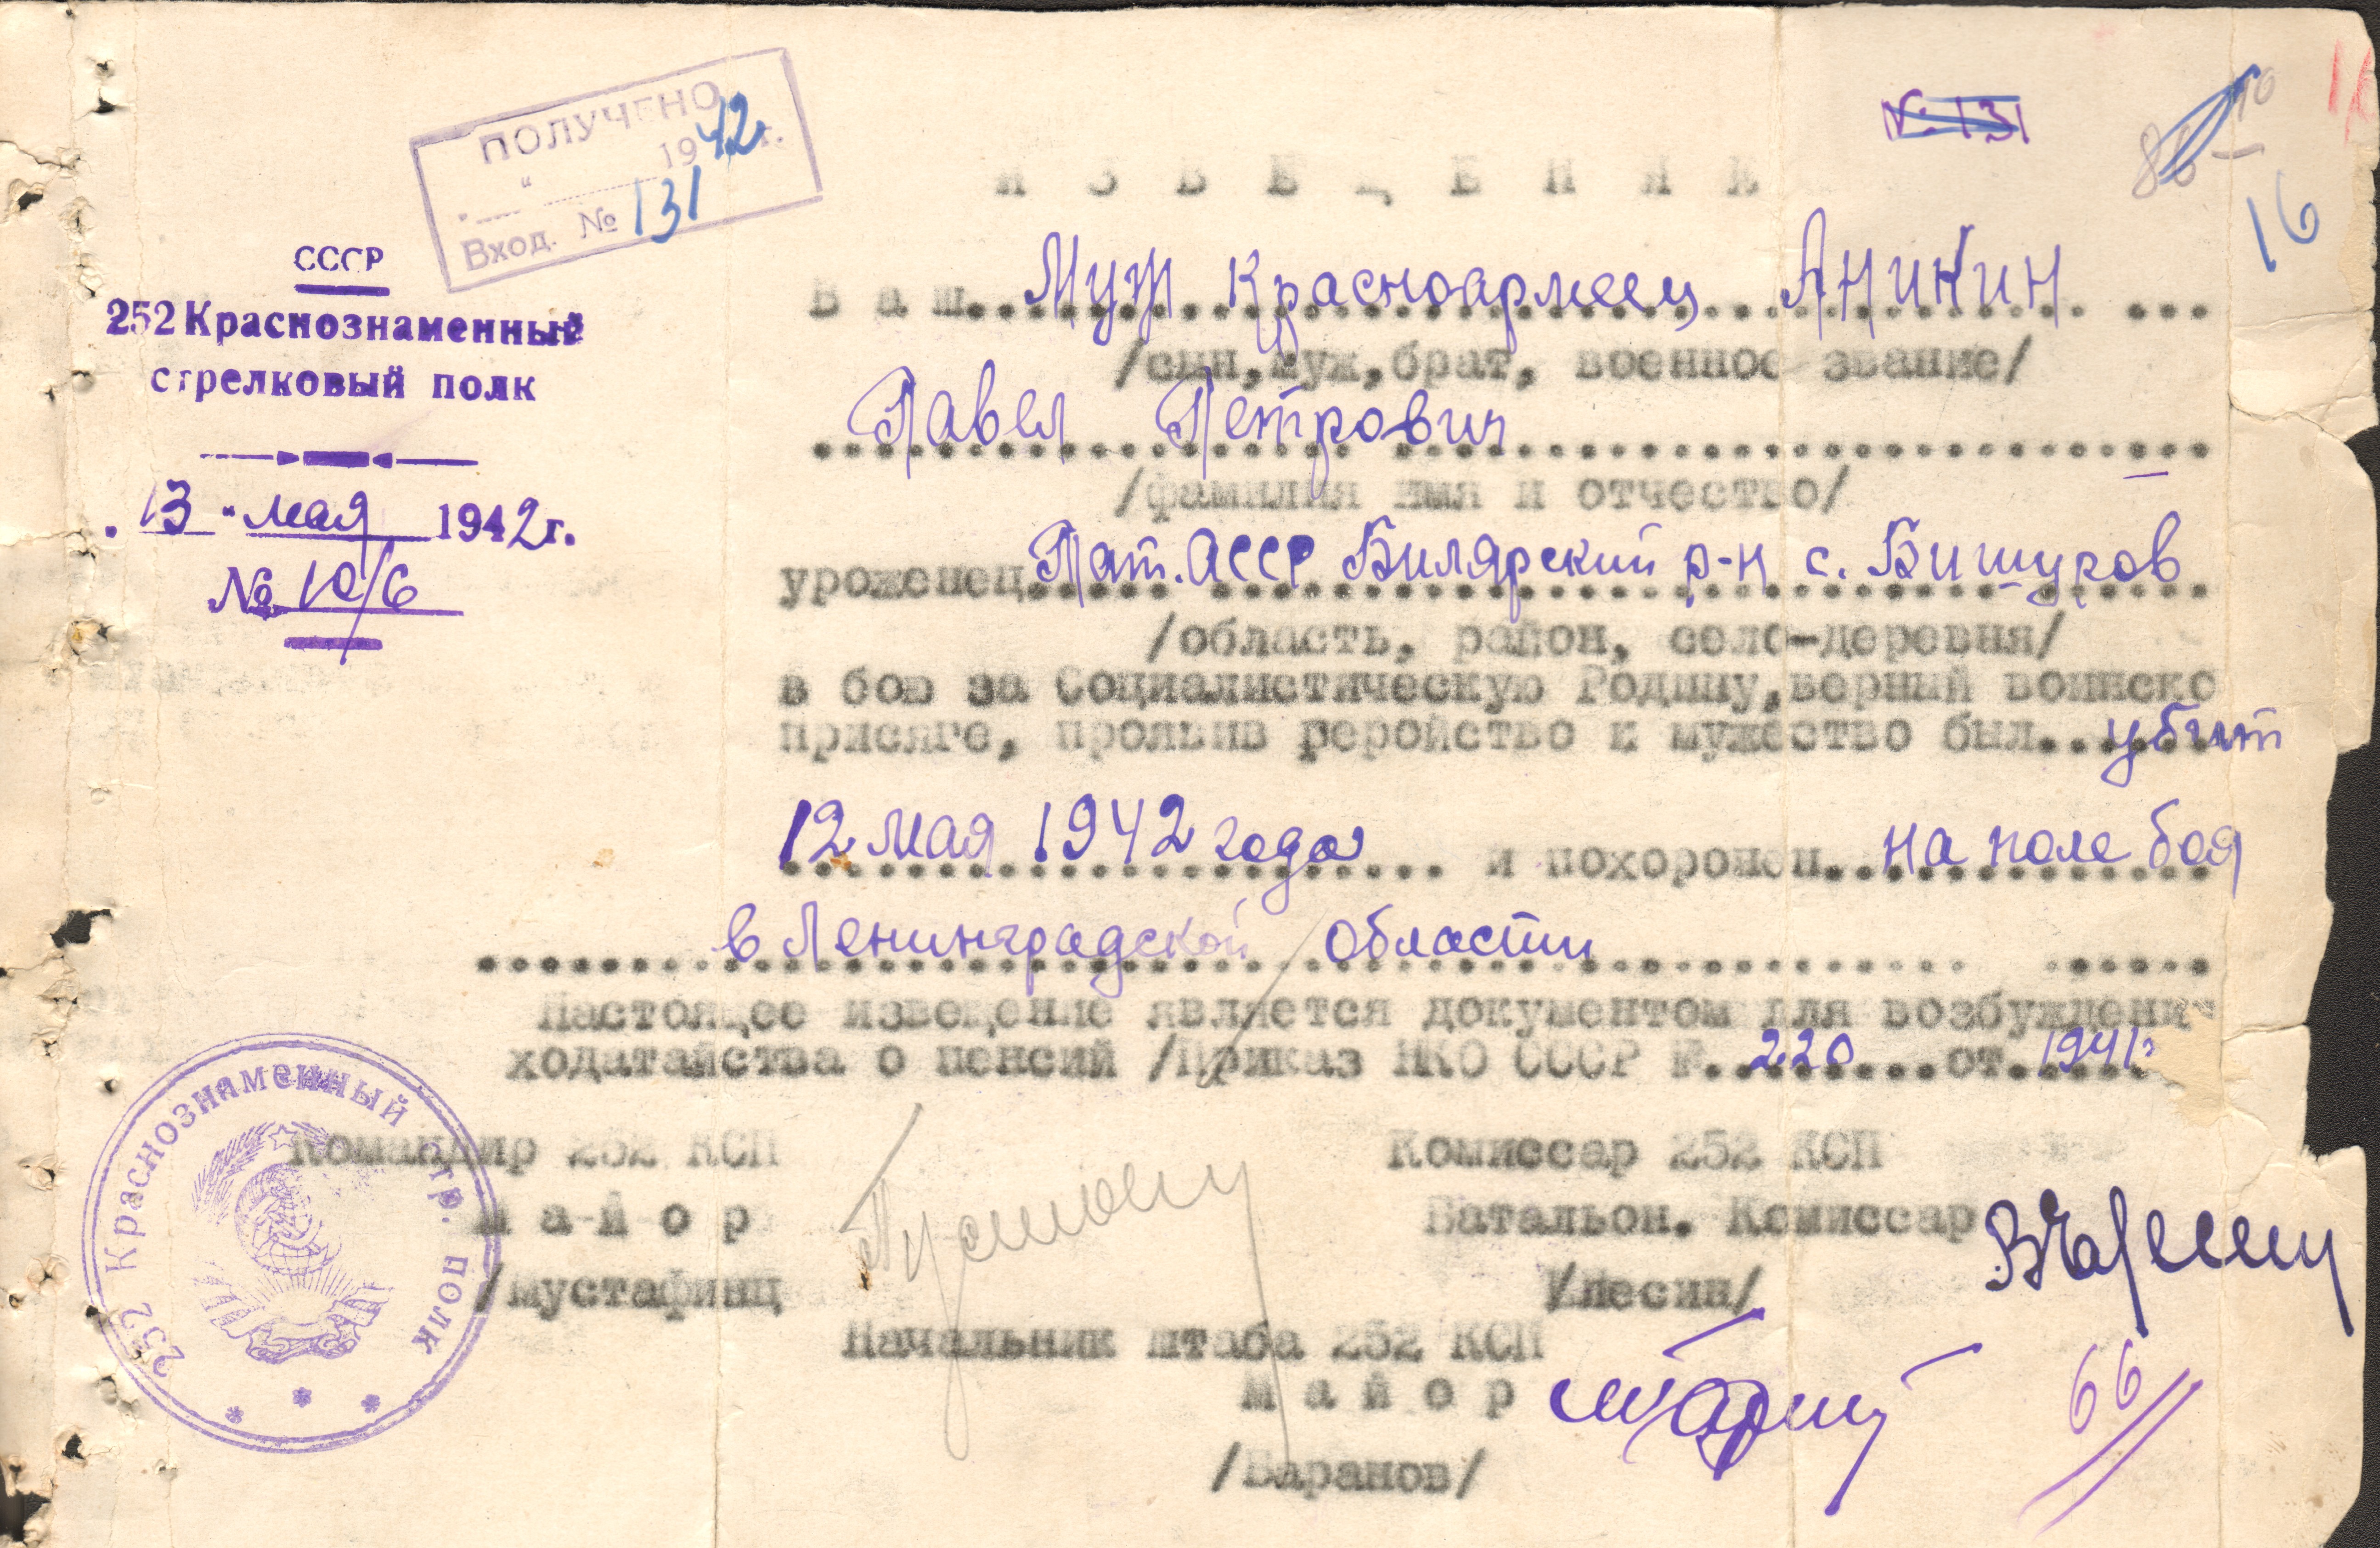 ПОЛУЧЕНО
" 1942 г.
Вход. № 131
№ 131
86
16
СССР
252 Краснознаменный
стрелковый полк
"13" мая 1942 г.
№ 10/6
И З В Е Щ Е Н И Е
Ваш Муж Красноармеец Аникин
/сын, муж, брат, военное звание/
Павел Петрович
/фамилия имя и отчество/
уроженец Тат. АССР Билярский р-н с.
/область, район, село-деревня/
в бою за Социалистическую Родину, верный воинско
присяге, проявив геройство и мужество был убит
12 мая 1942 года и похоронен на поле боя
в Ленинградской области
Настоящее извещение является документом для возбуждени
ходатайства о пенсий /Приказ НКО СССР № 220 от 1941г
Командир 252 КСП
М а й о р
/мустафин
Комиссар 252 КСП
Батальон. Комиссар
/лесин/
Начальник штаба 252 КСП
М а й о р
/Баранов/
66
252 Краснознаменный стр. полк